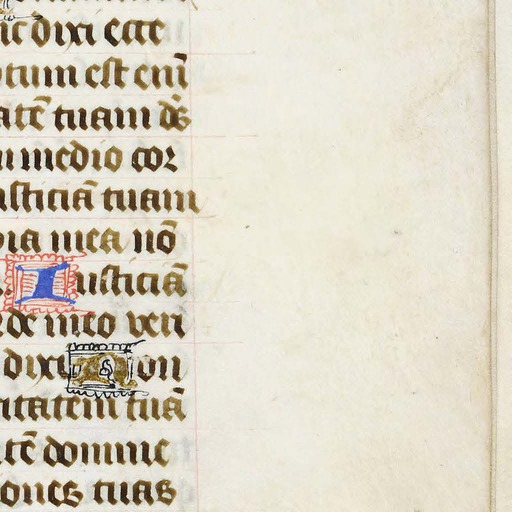 ic dixi ecce
ptum est eni̅
ate̅ tuam ds̅
in medio cor
usticia̅ tuam
bia mea no̅
Iusticia̅
rde meo veri
dixi Non
itatem tua̅
te̅ domine
ones tuas